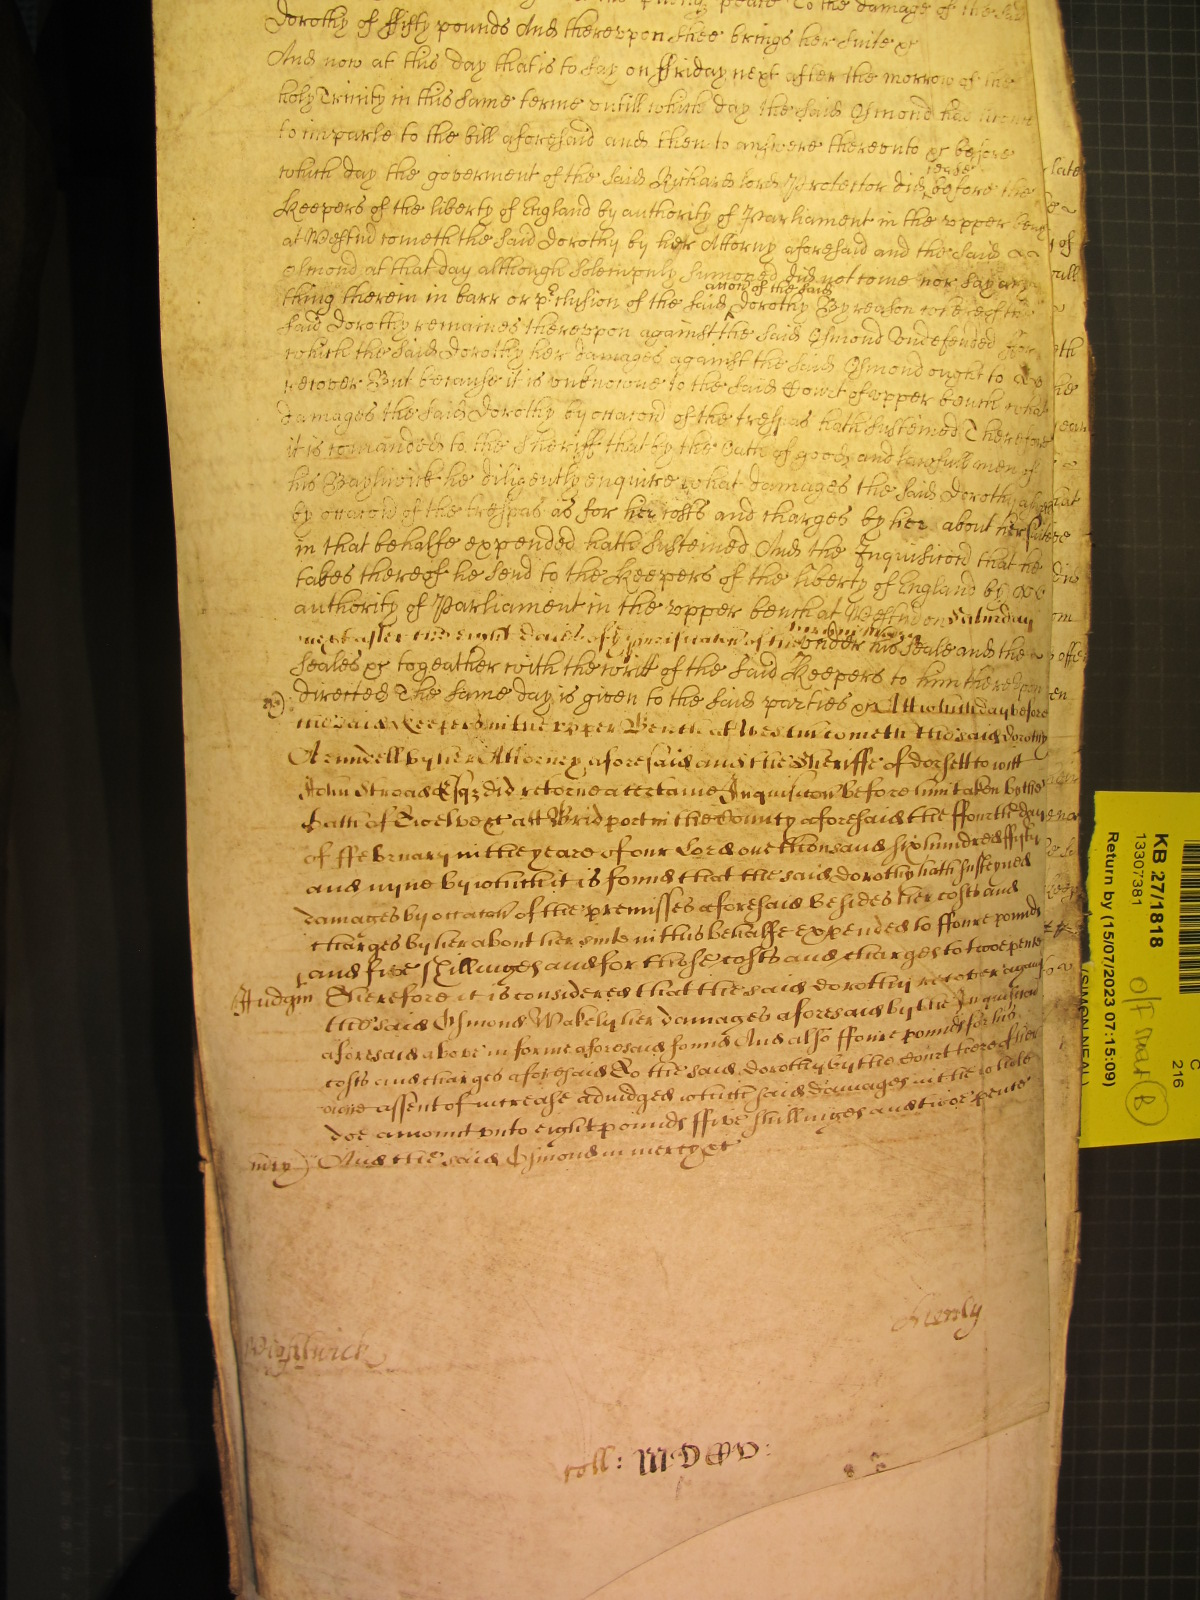 to the damage of the said
Dorothy of ffifty pounds And thereupon shee brings her suite &c
And now at this day that is to say on ffriday next after the morrow of the
holy Trinity in this same terme untill which day the said Osmond had licence
to imparle to the bill aforesaid and then to answere thereunto &c before
which day the goverment of the said Richard lord Protector did cease before the
Keepers of the liberty of England by authority of Parliament in the upper bench
at Westmr cometh the said Dorothy by her Attorny aforesaid and the said
Osmond at that day although solempnly sumoned did not come nor say any
thing therein in barr or pclusion of the said accon of the said Dorothy By reason whereof the
said Dorothy remaines thereupon against the said Osmond undefended for
which the said Dorothy her damages against the said Osmond ought to
recover But because it is unknowne to the said Court of upper bench what
damages the said Dorothy by occacon of the trespas hath susteined Therefore
it is comanded to the Sheriff that by the Oath of good and lawfull men of
his Bayliwick he diligently enquire what damages the said Dorothy
by occacon of the trespas as for her costs and charges by her about her suite
in that behalfe expended hath susteined And the Inquisicon that he
takes thereof he send to the Keepers of the liberty of England by
authority of Parliament in the upper bench at Westmr on Saturday
next after the eight daies of the purificacon of under his seale and the
seales &c togeather with the writt of the said Keepers to him thereupon
directed The same day is given to the said parties &c Att which day before
the said Keepers in the upper Bench at Westmr cometh the said dorothy
Arundell by her Attorney aforesaid and the Sheriffe of dorsett to witt
John Stroad Esqr did retorne a certaine Inquisicon before him taken by the
Oath of Twelve &c att Bridport in the County aforesaid the ffourth day
of ffebruary in the yeare of our Lord one thousand six hundred fifty
and nyne by which it is found that the said dorothy hath susteyned
damages by occacon of the premisses aforesaid besides her costs and
charges by her about her suite in this behalfe expended to ffoure pounds
and five shillinges and for those costs and charges to twoe pence
Judgm Therefore it is considered that the said dorothy recover against
the said Osmond Wakely her damages aforesaid by the Inquisicon
aforesaid above in forme aforesaid found And also ffoure pounds for his
costs and charges aforesaid To the said dorothy by the Court here of her
owne assent of increase adiudged which said damages in the whole
doe amount unto eight pounds ffive shillinges and twoe pence
mcy And the said Osmond in mercy &c
Henly
Wightwick
roll: MDCCV:
KB 27/1818
13307381
Return by (15/07/2023 07:15:09)
(SIMON NEAL)
216